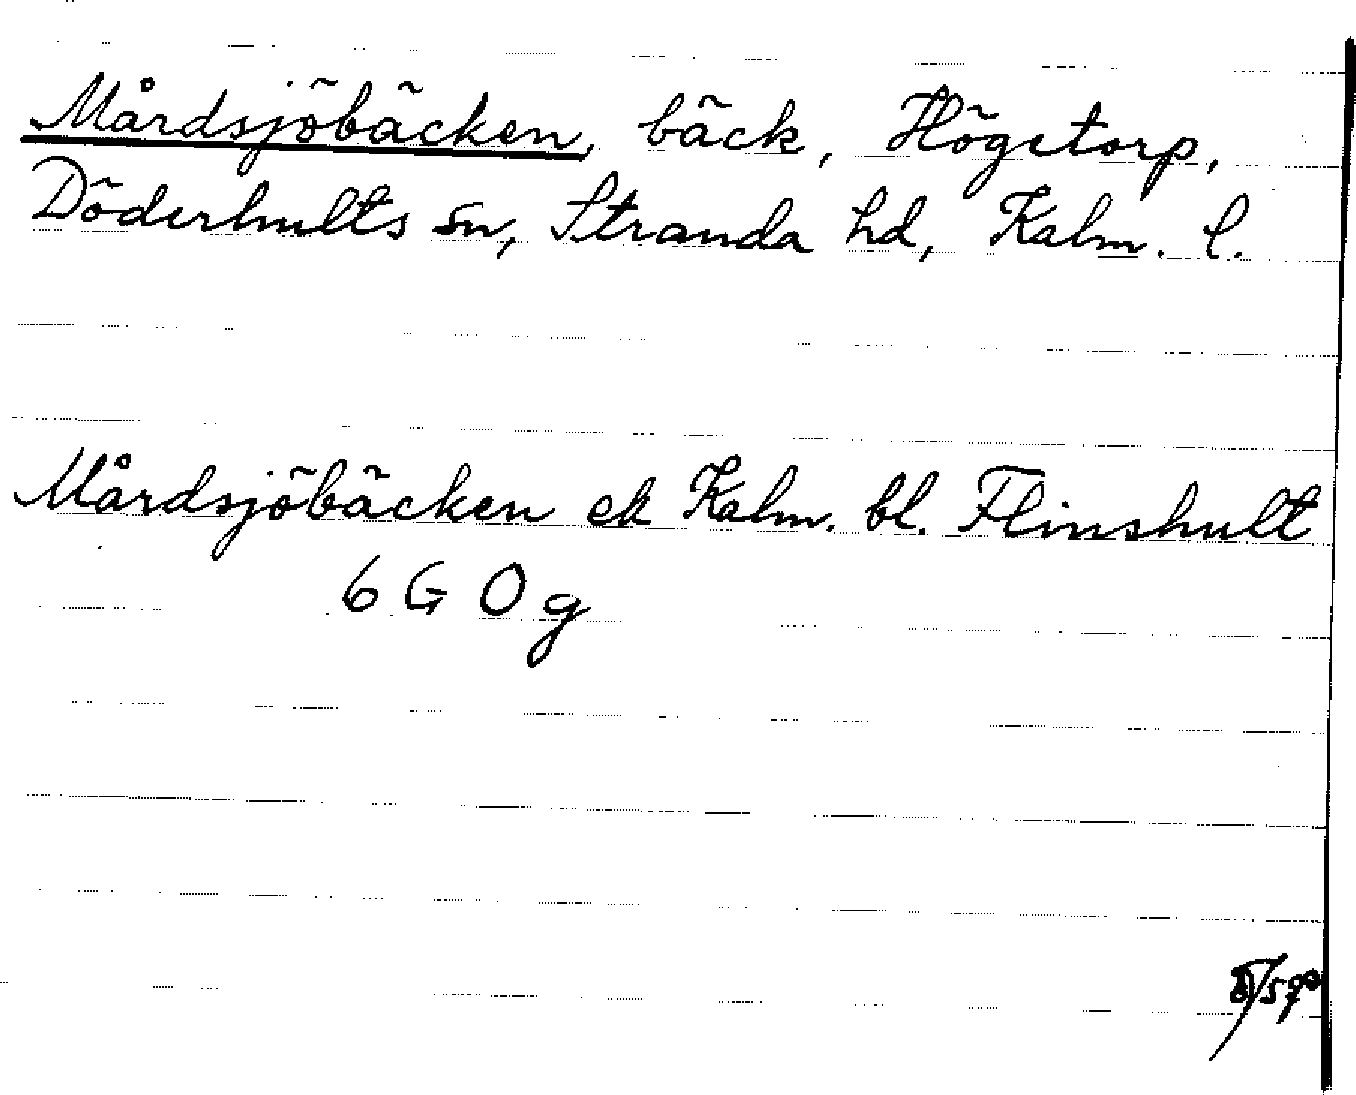 Mårdsjöbäcken, bäck, Högetorp,
Döderhults sn, Stranda hd, Kalm. l.
Mårdsjöbäcken ek Kalm. bl. Flinshult
6 G 0 g